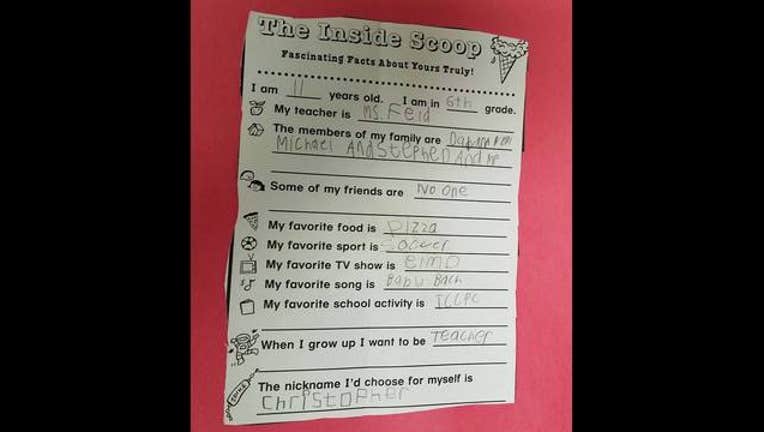 The Inside Scoop
Fascinating Facts About Yours Truly!
I am 11 years old. I am in 6th grade.
My teacher is Ms. Feid
The members of my family are
Michael And Stephen And me
Some of my friends are No one
My favorite food is pizza
My favorite sport is Soccer
My favorite TV show is elmo
My favorite song is Babu Bach
My favorite school activity is
When I grow up I want to be Teacher
The nickname I'd choose for myself is
Christopher